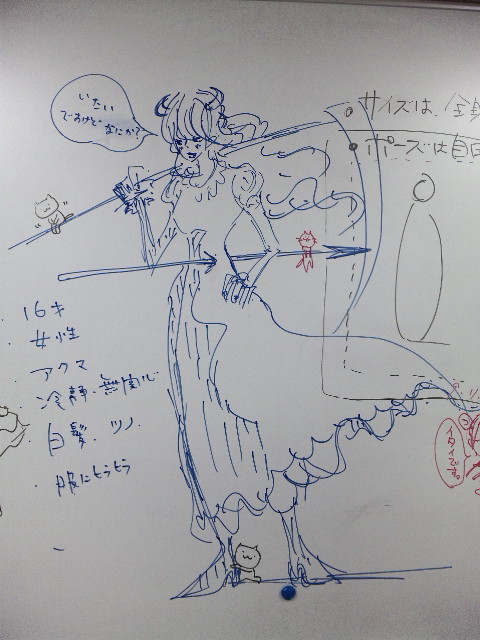 いたい
ですけど なにか?
サイズは、全身
ポーズは自由
・16才
・女性
・アクマ
・冷静・無関心
・白髪、ツノ
・服にヒラヒラ
イタイデス